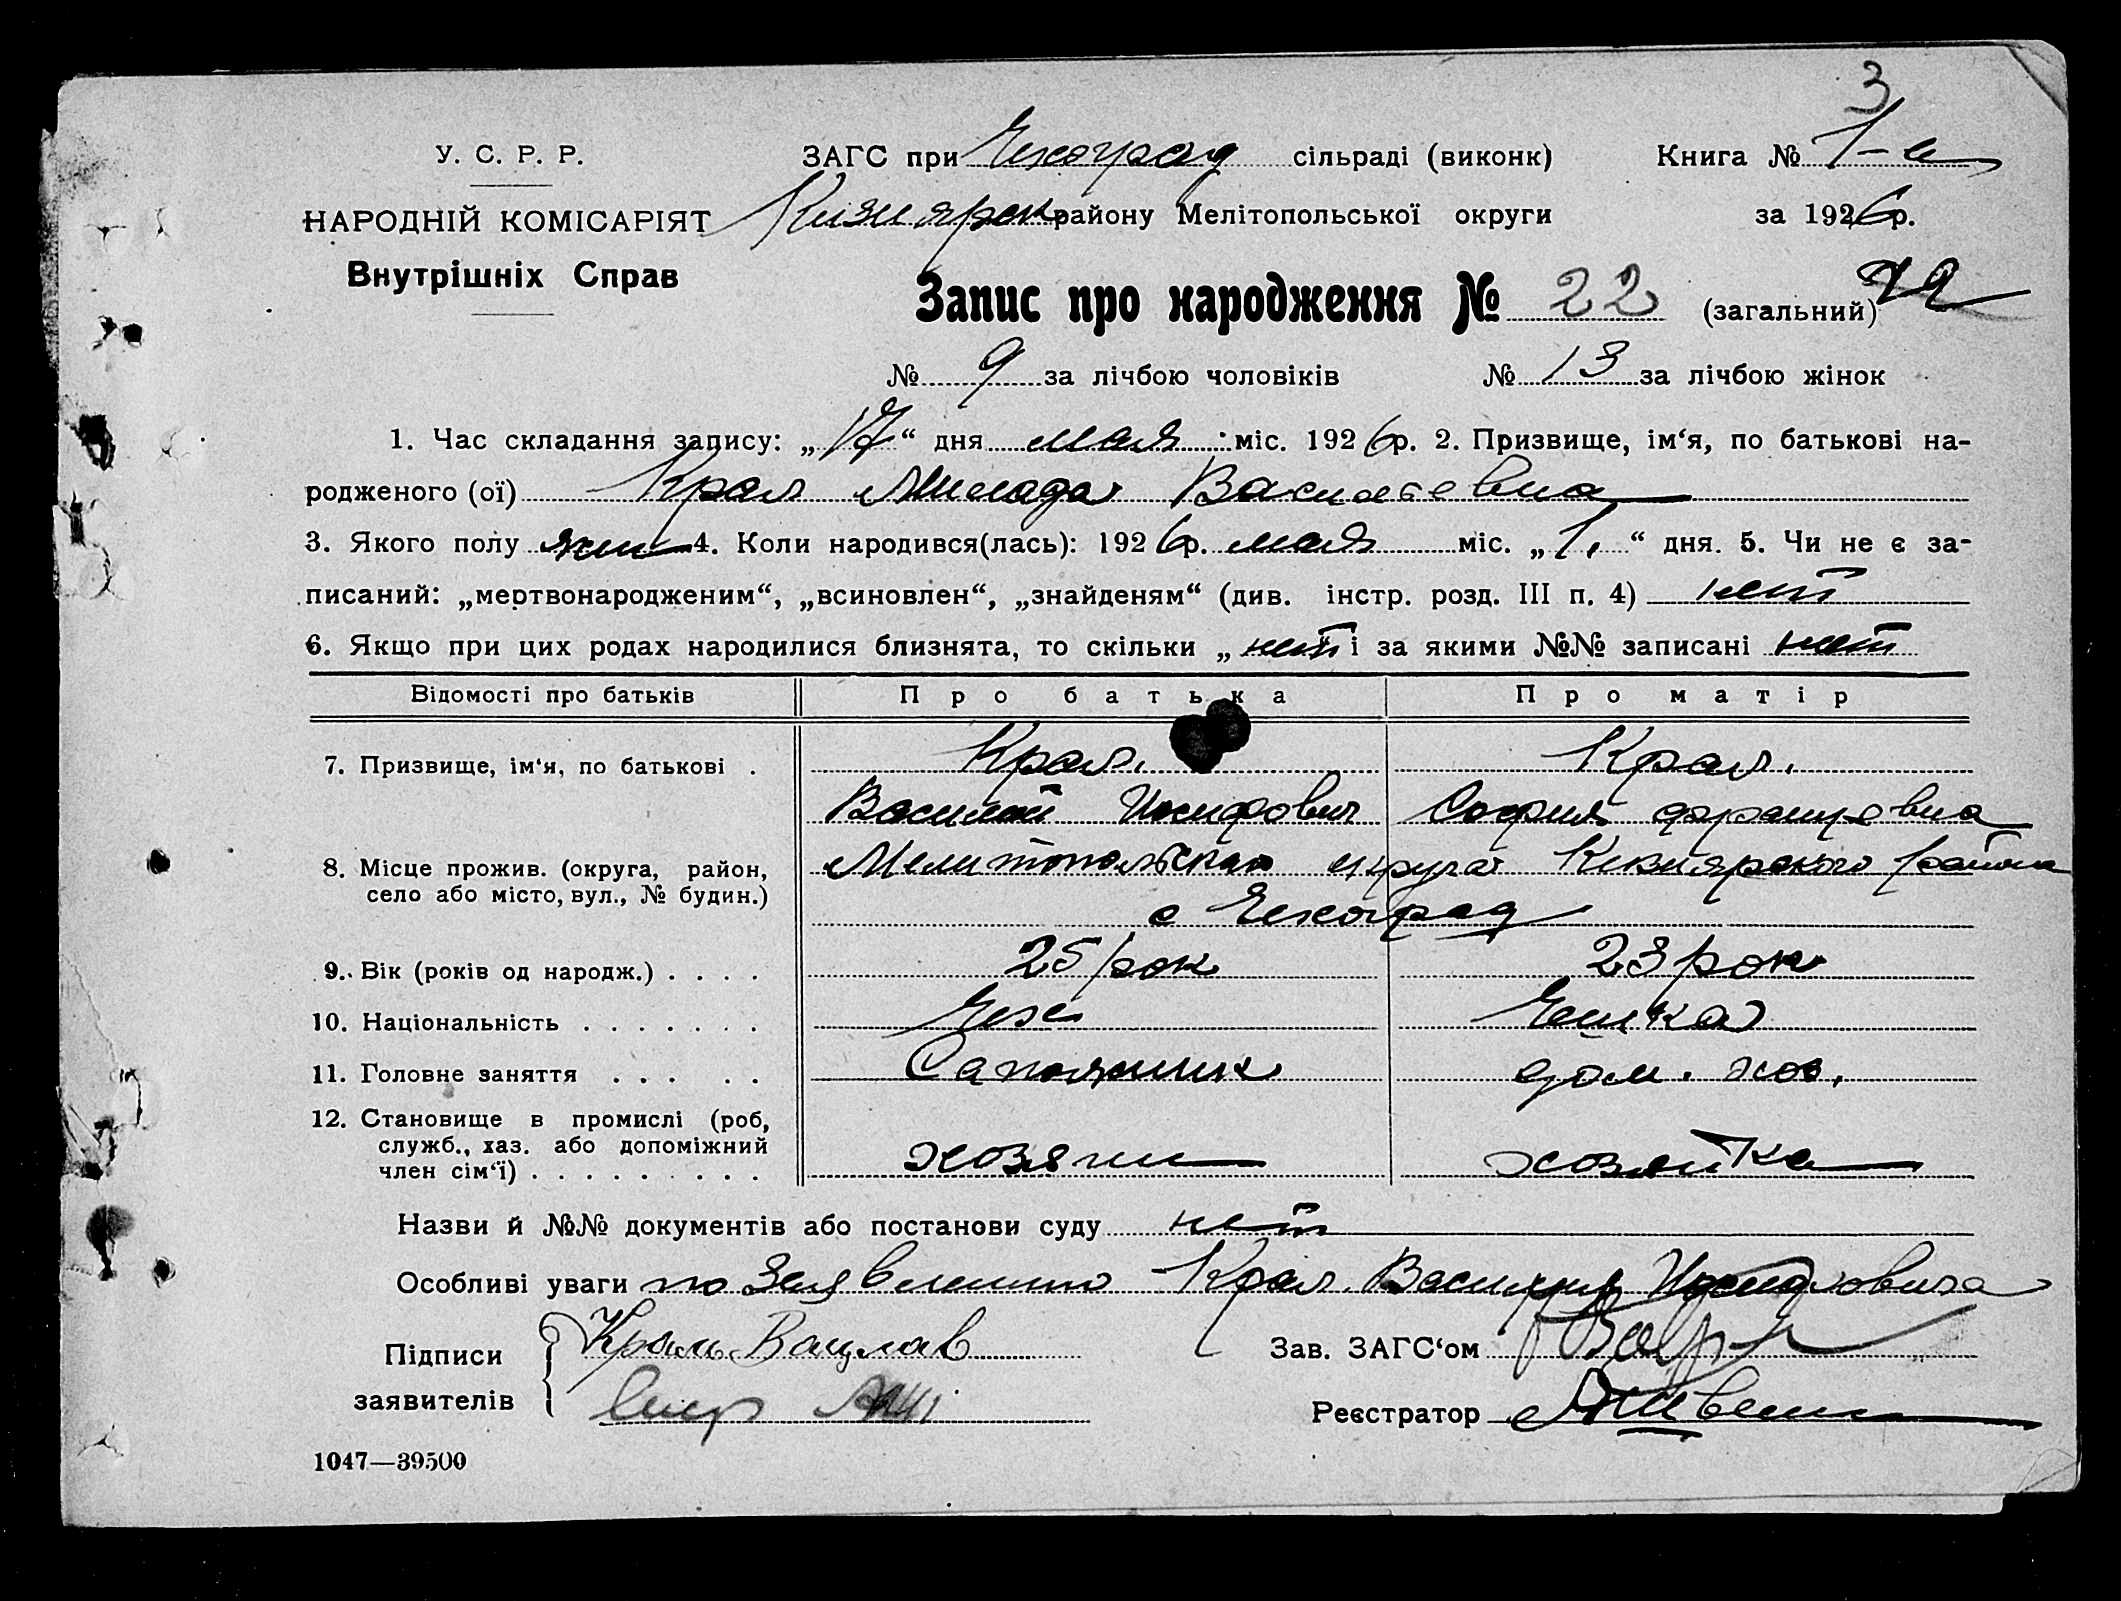 3
У. С. Р. Р.
ЗАГС при Чехоград сільраді (виконк)
Книга № 1-а
НАРОДНІЙ КОМІСАРІЯТ
Кизиярск району Мелітопольської округи
за 1926р.
Внутрішніх Справ
Запис про народження № 22 (загальний)
№ 9 за лічбою чоловіків № 13 за лічбою жінок
1. Час складання запису: „17“ дня мая міс. 1926р. 2. Призвище, ім‘я, по батькові на-
родженого (ої) Крал Милада Васильевна
3. Якого полу жин 4. Коли народився(лась): 1926р. мая міс. „1.“ дня. 5. Чи не є за-
писаний: „мертвонародженим“, „всиновлен“, „знайденям“ (див. інстр. розд. III п. 4) нет
6. Якщо при цих родах народилися близнята, то скільки „нет“ і за якими №№ записані нет
Відомості про батьків
Про батька
Про матір
7. Призвище, ім‘я, по батькові .
Крал.
Крал.
Василий Иосифович
София Францовна
8. Місце прожив. (округа, район,
село або місто, вул., № будин.)
Мелитопольская округа Кизиярского района
с Чехоград
9. Вік (років од народж.) . . . .
25 рок
23 рок
10. Національність . . . . . . .
Чех
Чешка
11. Головне заняття . . . . .
Сапожник
дом. хоз.
12. Становище в промислі (роб,
служб., хаз. або допоміжний
член сім‘ї) . . . . . . . . .
хозяин
хозяйка
Назви й №№ документів або постанови суду нет
Особливі уваги по Заявлению Крал Василия Иосифовича
Підписи
заявителів
Краль Вацлав
Зав. ЗАГС‘ом
Реєстратор
1047—39500